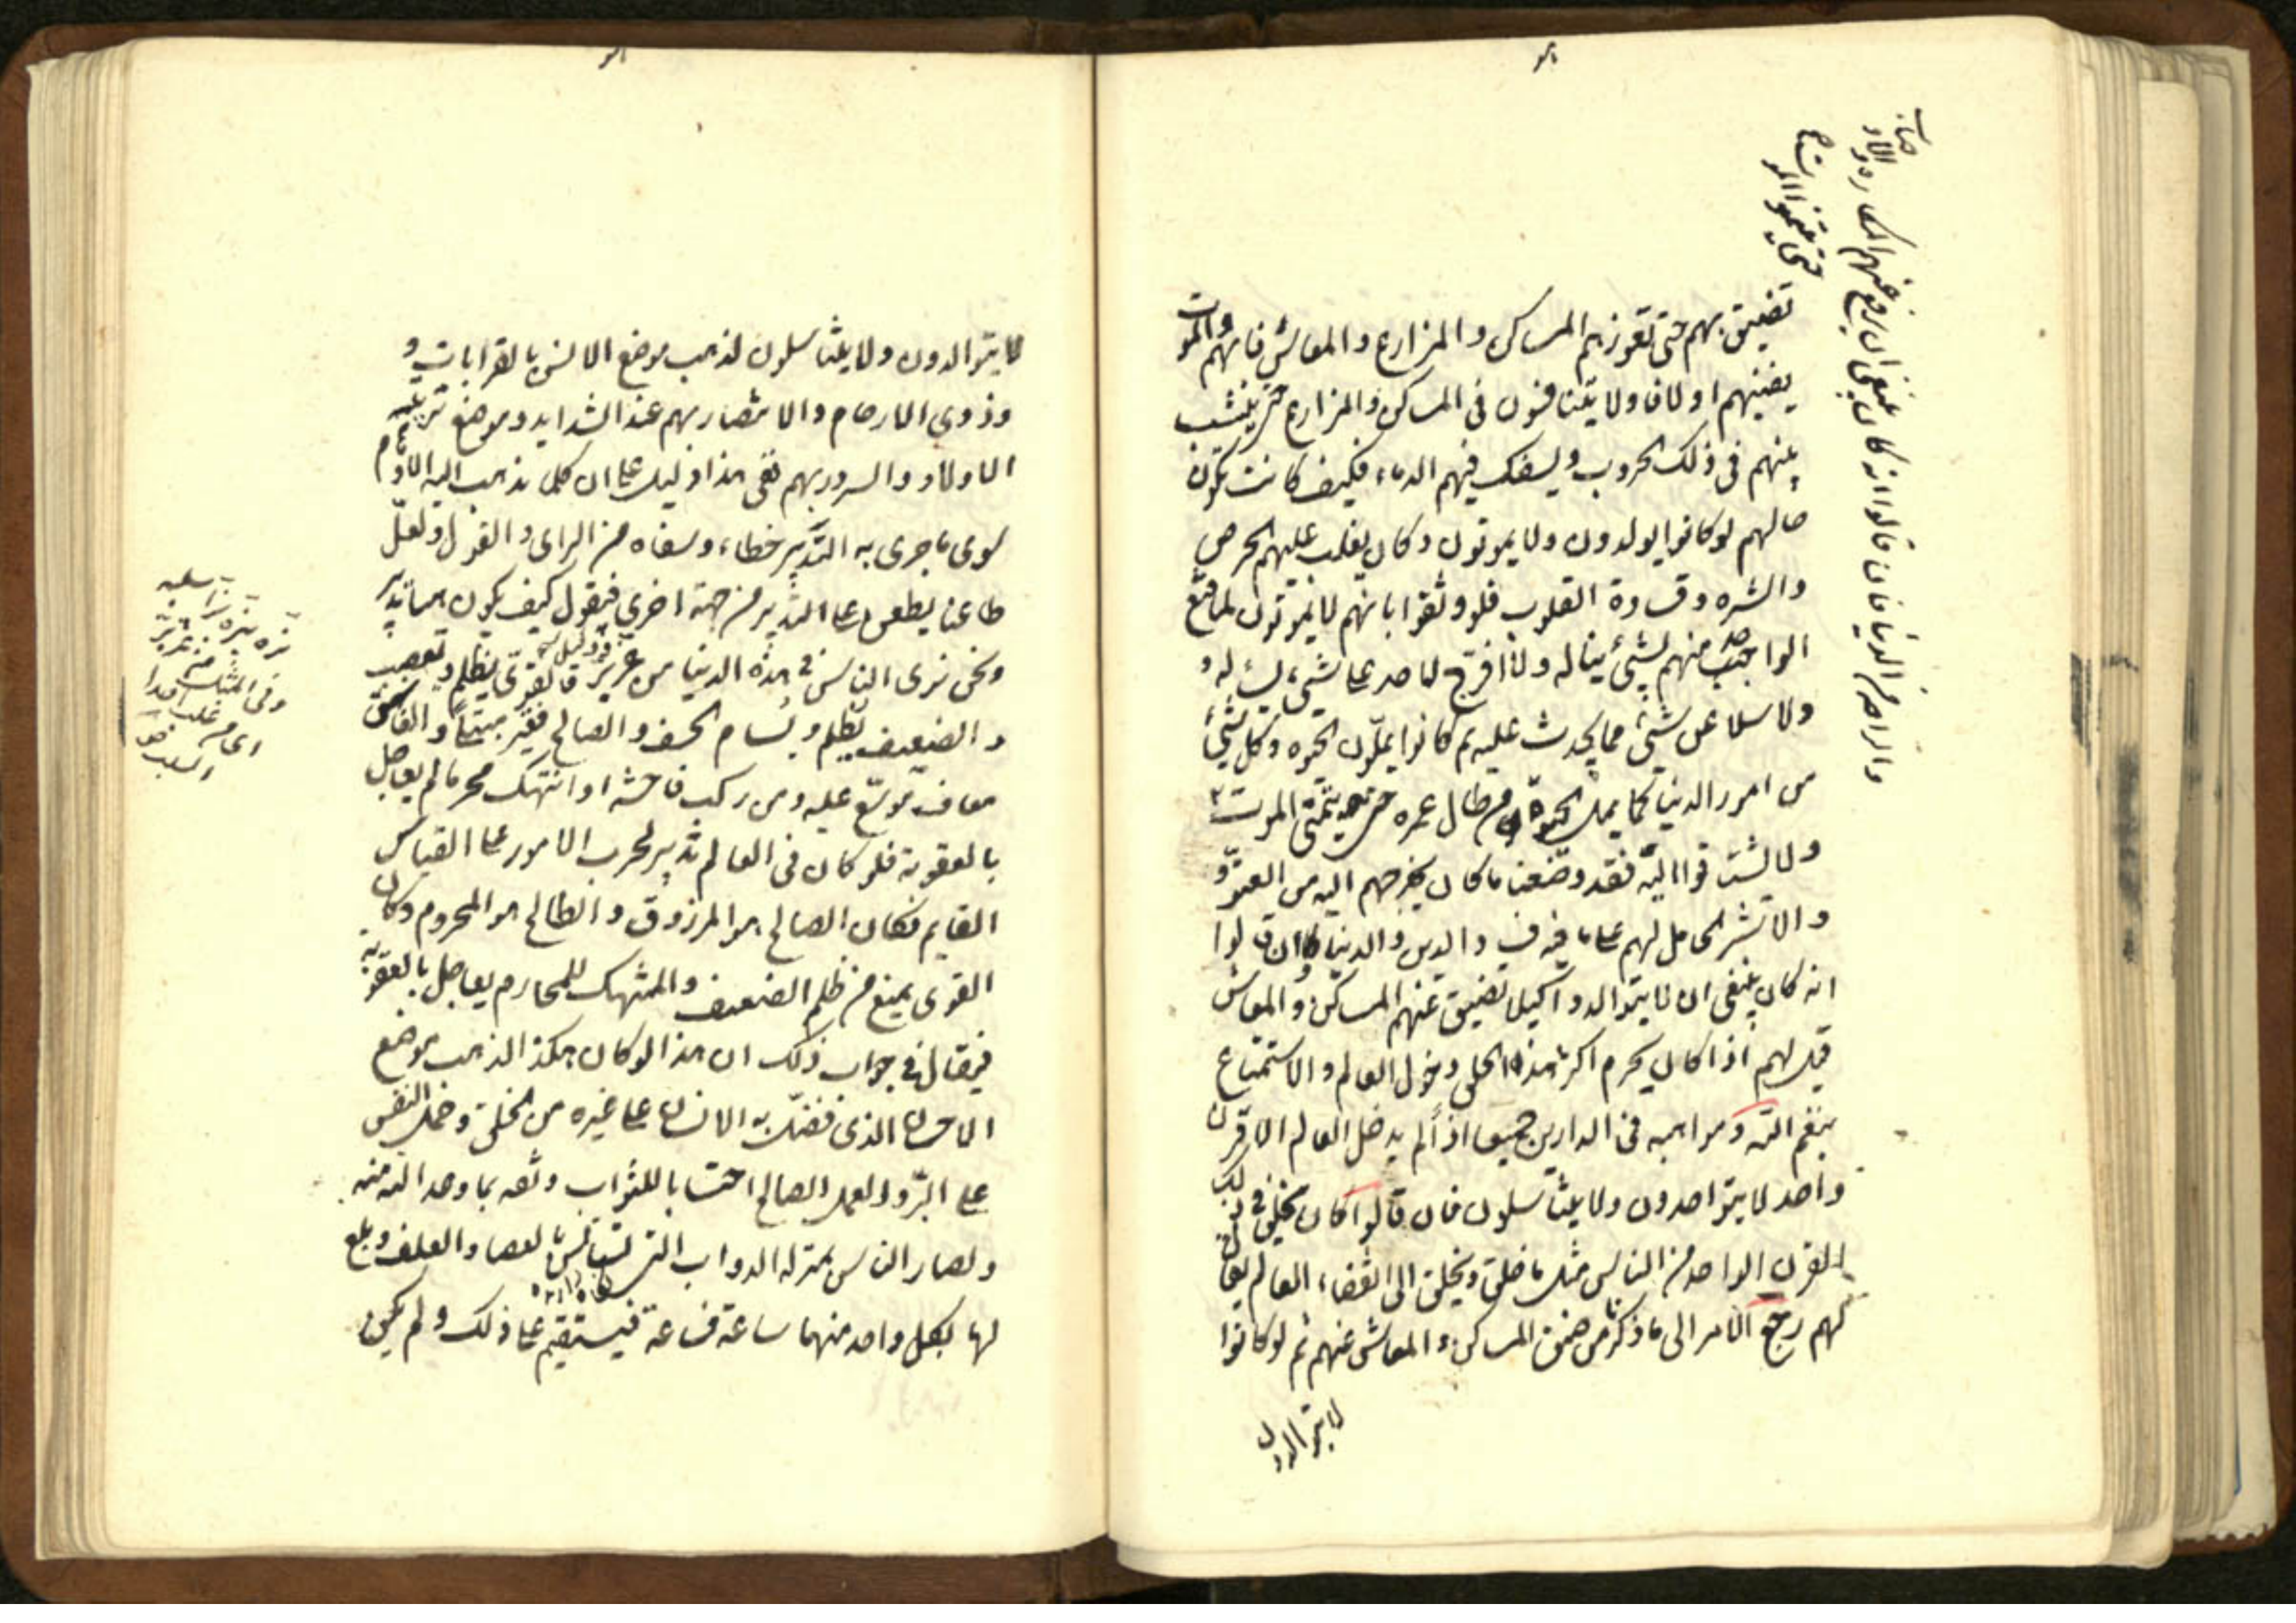 تضيق بهم حتى تعوزهم المساكن والمزارع والمعائش فانهم والموت
يفنيهم اولا فاولا يتنافسون فى المساكن والمزارع حتى ينشب
بينهم فى ذلك الحروب ويسفك فيهم الدماء فكيف كانت تكون
حالهم لو كانوا يولدون ولا يموتون وكان يغلب عليهم الحرص
والشره وقساوة القلوب فلو وثقوا بانهم لا يموتون لما قنع
الواحد منهم بشئ يناله ولا افرج لاحد عما شئ يسئله و
ولا سلا عن شئ مما يحدث عليه ثم كانوا يملون الحيوة وكل شئ
من امور الدنيا كما يمل الحيوة من طال عمره حتى يتمنى الموت
والا تشر الحامل لهم على ما فيه فساد الدين والدنيا فان قالوا
انه كان ينبغى ان لا يتوالدوا كيلا تضيق عنهم المساكن والمعاش
قيل لهم اذا كان يحرم اكثر هذا الخلق دخول العالم والاستمتاع
بنعم الله ومواهبه فى الدارين جميعا اذا لم يدخل العالم الا قرن
واحد لا يتوالدون ولا يتناسلون فان قالوا كان يخلق فى ذلك
القرن الواحد من الناس مثل ما خلق ويخلق الى انقضاء العالم يقال
لهم رجع الامر الى ما ذكرنا من ضيق المساكن والمعاش عنهم ثم لو كانوا
لا يتوالدون
حتى يتمنوا الموت
فان قالوا انه كان ينبغى ان يرفع عنهم المكاره و
لا يتوالدون ولا يتناسلون لذهب موضع الانس بالقرابات و
وذوي الارحام والانتصار بهم عند الشدايد وموضع تربية
الاولاد والسرور بهم ففى هذا دليل على ان كلما تذهب اليه الاوهام
سوى ما جرى به التدبير خطاء وسفاه من الراى والقول ولعل
طاعنا يطعن على التدبير من جهة اخرى فيقول كيف يكون ههنا تدبير
ونحن نرى الناس فى هذه الدنيا من عز بز فالقوى يظلم ويغصب
والضعيف يظلم ويسام الخسف والصالح فقير مبتلى والفاسق
معافى موسع عليه ومن ركب فاحشة او انتهك محرما لم يعاجل
بالعقوبة فلو كان فى العالم تدبير لجرت الامور على القياس
القايم فكان الصالح هو المرزوق والطالح هو المحروم وكان
القوى يمنع من ظلم الضعيف والمنتهك للمحارم يعاجل بالعقوبة
فيقال فى جواب ذلك ان هذا لو كان هكذا لذهب موضع
الاحسان الذى فضل به الانسان على غيره من الخلق وحمل النفس
على البر والعمل الصالح احتسابا للثواب وثقة بما وعد الله منه
ولصار الناس بمنزلة الدواب التى تساس بالعصا والعلف ويلمع
لها بكل واحد منهما ساعة فساعة فتستقيم على ذلك ولم يكن
بزه يبزه بزا سلبه
وفى المثل من عز بز
اى من غلب اخذ
السلب